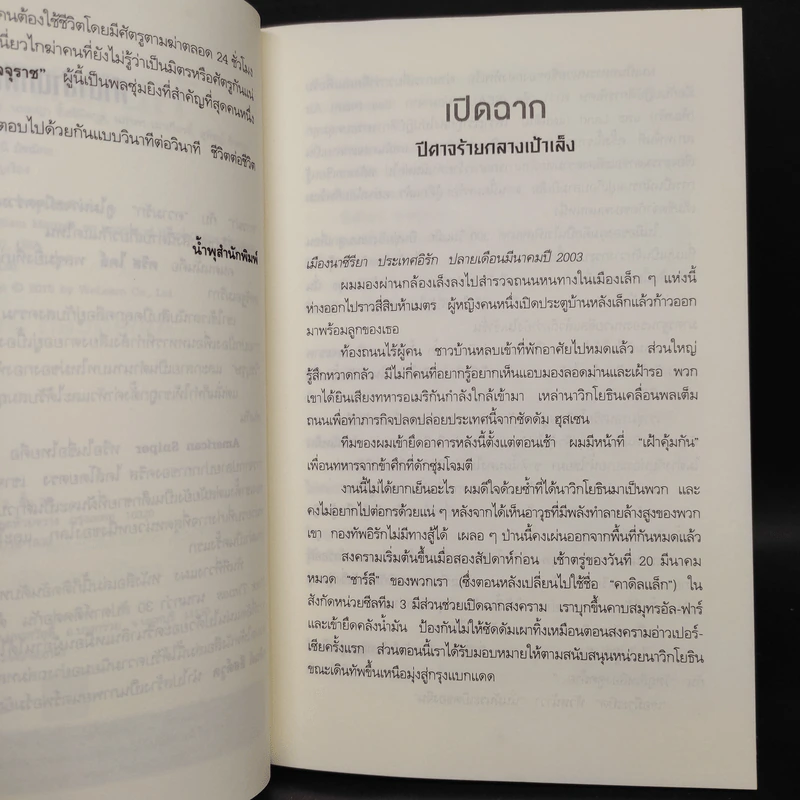 คนต้องใช้ชีวิตโดยมีศัตรูตามฆ่าตลอด 24 ชั่วโมง
นี่ยวไกฆ่าคนที่ยังไม่รู้ว่าเป็นมิตรหรือศัตรูกันแน่
จุราช" ผู้นี้เป็นพลซุ่มยิงที่สำคัญที่สุดคนหนึ่ง
ตอบไปด้วยกันแบบวินาทีต่อวินาที ชีวิตต่อชีวิต
น้ำพุสำนักพิมพ์
เปิดฉาก
ปีศาจร้ายกลางเป้าเล็ง
เมืองนาซีรียา ประเทศอิรัก ปลายเดือนมีนาคมปี 2003
ผมมองผ่านกล้องเล็งลงไปสำรวจถนนหนทางในเมืองเล็ก ๆ แห่งนี้
ห่างออกไปราวสี่สิบห้าเมตร ผู้หญิงคนหนึ่งเปิดประตูบ้านหลังเล็กแล้วก้าวออก
มาพร้อมลูกของเธอ
ท้องถนนไร้ผู้คน ชาวบ้านหลบเข้าที่พักอาศัยไปหมดแล้ว ส่วนใหญ่
รู้สึกหวาดกลัว มีไม่กี่คนที่อยากรู้อยากเห็นแอบมองลอดม่านและเฝ้ารอ พวก
เขาได้ยินเสียงทหารอเมริกันกำลังใกล้เข้ามา เหล่านาวิกโยธินเคลื่อนพลเต็ม
ถนนเพื่อทำภารกิจปลดปล่อยประเทศนี้จากซัดดัม ฮุสเซน
ทีมของผมเข้ายึดอาคารหลังนี้ตั้งแต่ตอนเช้า ผมมีหน้าที่ "เฝ้าคุ้มกัน"
เพื่อนทหารจากข้าศึกที่ดักซุ่มโจมตี
งานนี้ไม่ได้ยากเย็นอะไร ผมดีใจด้วยซ้ำที่ได้นาวิกโยธินมาเป็นพวก และ
คงไม่อยากไปต่อกรด้วยแน่ ๆ หลังจากได้เห็นอาวุธที่มีพลังทำลายล้างสูงของพวก
เขา กองทัพอิรักไม่มีทางสู้ได้ เผลอ ๆ ป่านนี้คงเผ่นออกจากพื้นที่กันหมดแล้ว
สงครามเริ่มต้นขึ้นเมื่อสองสัปดาห์ก่อน เช้าตรู่ของวันที่ 20 มีนาคม
หมวด "ชาร์ลี" ของพวกเรา (ซึ่งตอนหลังเปลี่ยนไปใช้ชื่อ "คาดิลแล็ก") ใน
สังกัดหน่วยซีลทีม 3 มีส่วนช่วยเปิดฉากสงคราม เราบุกขึ้นคาบสมุทรอัล-ฟาร์
และเข้ายึดคลังน้ำมัน ป้องกันไม่ให้ซัดดัมเผาทิ้งเหมือนตอนสงครามอ่าวเปอร์-
เซียครั้งแรก ส่วนตอนนี้เราได้รับมอบหมายให้ตามสนับสนุนหน่วยนาวิกโยธิน
ขณะเดินทัพขึ้นเหนือมุ่งสู่กรุงแบกแดด